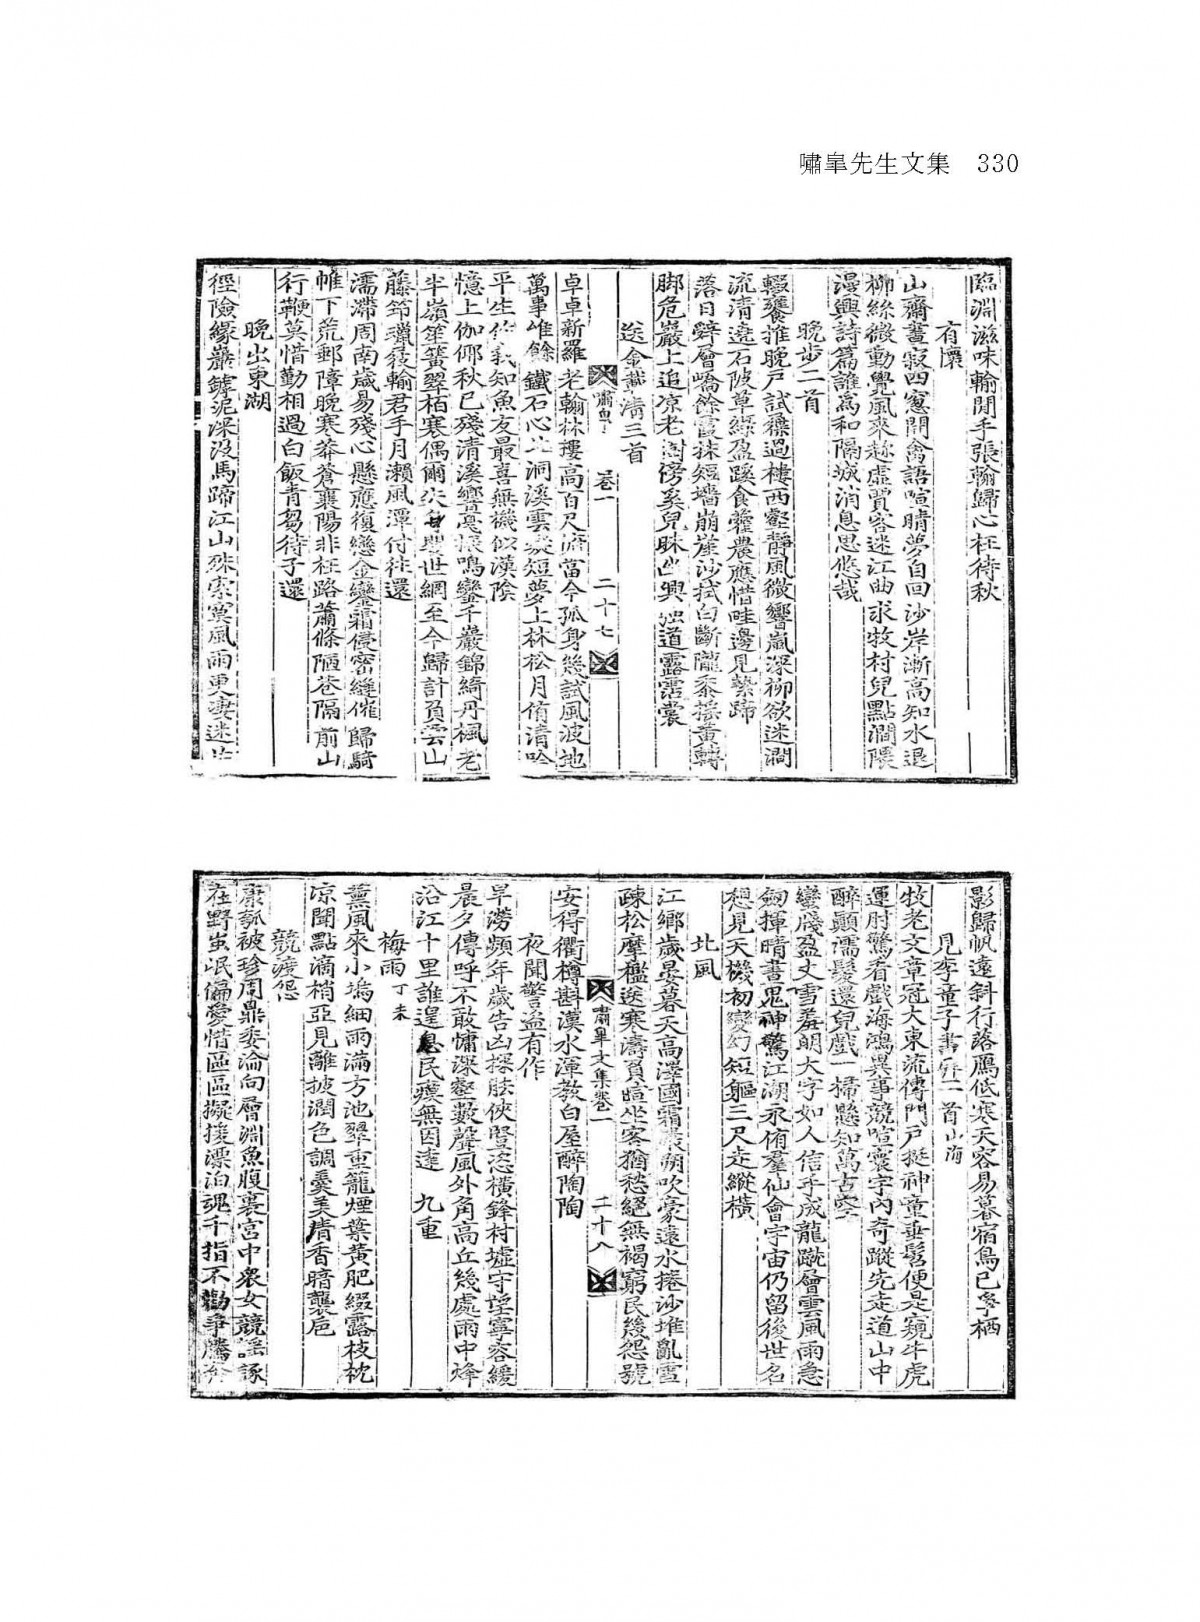 嘯皐先生文集 330
臨淵滋味輸閒手張翰歸心枉待秋
有懷
山齋晝寂四窓開禽語喧晴夢自回沙岸漸高知水退
柳絲微動覺風來趂虛賈客迷江曲求牧村兒點澗隈
漫興詩篇誰爲和隔城消息思悠哉
晩步二首
輟饔推晩戶試屧過樓西壑靜風微響嵐深柳欲迷澗
流清遶石陂草綠盈蹊食藿農應惜畦邊見縶蹄
落日辭層嶠餘霞抹短墻崩崖沙拭白斷隴黍搖黃轉
脚危巖上追凉老樹傍奚兒昧幽興 道露霑裳
送金 淸三首
卓卓新羅老翰林樓高百尺 當今孤身幾試風波地
萬事唯餘鐵石心 洞溪雲 短夢上林松月脩清吟
平生 知魚友最喜無機似漢陰
憶上伽倻秋已殘清溪響 鳴鑾千巖錦綺丹楓老
半嶺笙簧翠栢寒偶爾 世網至今歸計負雲山
藤笻蠟屐輸君手月瀨風潭付往還
濡滯周南歲易殘心懸應復戀金鑾霜侵密縫催歸騎
帷下荒郵障晩寒莽蒼襄陽非枉路蕭條陋巷隔前山
行鞭莫惜勤相過白飯青芻待子還
晩出東湖
徑險緣巖罅泥深没馬蹄江山殊索寞風雨更凄迷
卷一
二十七
影歸帆遠斜行落鴈低寒天容易暮宿鳥已爭栖
見李童子書屛二首山海
牧老文章冠大東流傳門戶挺神童垂髫便是窺牛虎
運肘驚看戲海鴻異事競喧寰宇內奇蹤先走道山中
醉顚濡髮還兒戲一掃懸知萬古空
蠻牋盈丈雪羞明大字如人信手成龍蹴層雲風雨急
劒揮晴晝鬼神驚江湖永侑羣仙會宇宙仍留後世名
想見天機初變幻短軀三尺走縱橫
北風
江鄕歲晏暮天高澤國霜 朔吹豪遠水捲沙堆亂雪
疎松摩檻送寒濤負暄坐客猶愁絕無褐窮民幾怨號
安得衢樽斟漢水渾教白屋醉陶陶
嘯皐文集卷一
二十八
夜聞警盜有作
旱澇頻年歲告凶探胠俠竪恣橫鋒村墟守望寧容緩
晨夕傳呼不敢慵深壑數聲風外角高丘幾處雨中烽
沿江十里誰遑息民瘼無因達 九重
梅雨丁未
薰風來小塢細雨滿方池翠重籠煙葉黄肥綴露枝枕
凉聞點滴梢亞見離披潤色調羹美清香暗襲巵
競渡怨
康瓠被珍周鼎委淪向層淵魚腹裏宮中衆女競謠諑
在野蚩氓偏愛惜區區擬援漂泊魂千指不勸爭騰